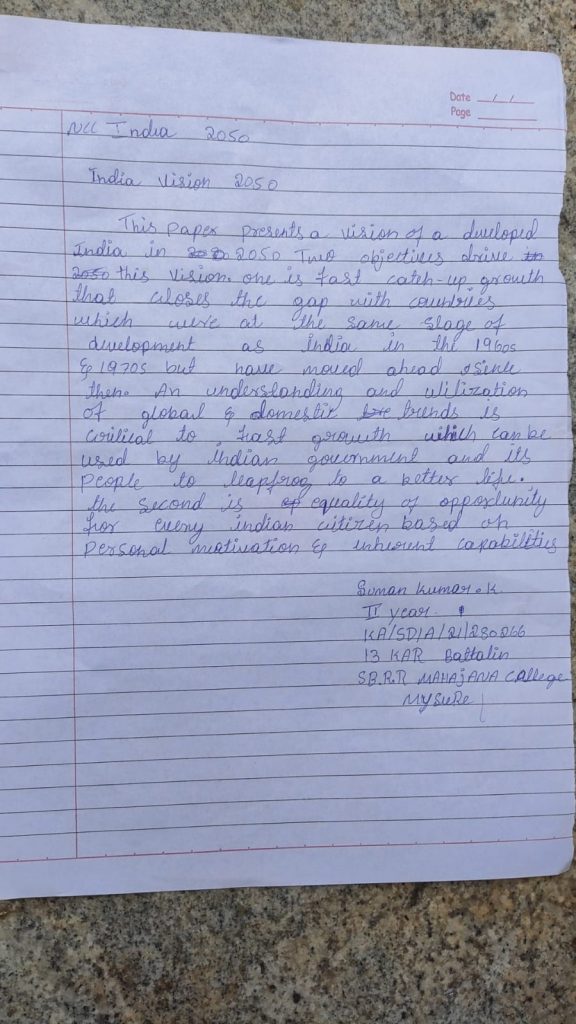 Date / /
Page
NCC India 2050
India Vision 2050
This Paper presents a vision of a developed
India in 2050 Two objectives drive
this vision. one is fast catch-up growth
that closes the gap with countries
which were at the same stage of
development as India in the 1960s
& 1970s but have moved ahead since
then. An understanding and utilization
of global & domestic trends is
critical to fast growth which can be
used by indian government and its
People to leapfrog to a better life.
the second is equality of opportunity
for every indian citizen based on
Personal motivation & inherent capabilities
Suman Kumar. K.
II year.
KA/SD/A/21/280266
13 KAR Battalin
SB.R.R MAHAJANA College
MYSURe